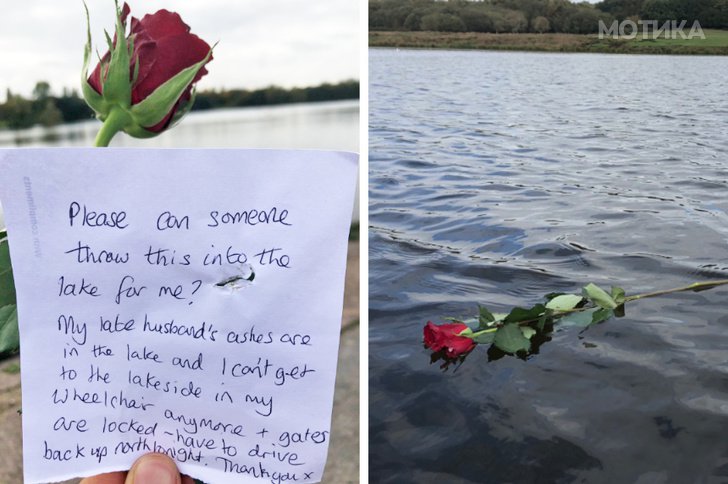 МОТИКА
Please can someone
throw this into the
lake for me?
My late husband's ashes are
in the lake and I can't get
to the lakeside in my
wheelchair anymore + gates
are locked - have to drive
back up north tonight. Thankyou x